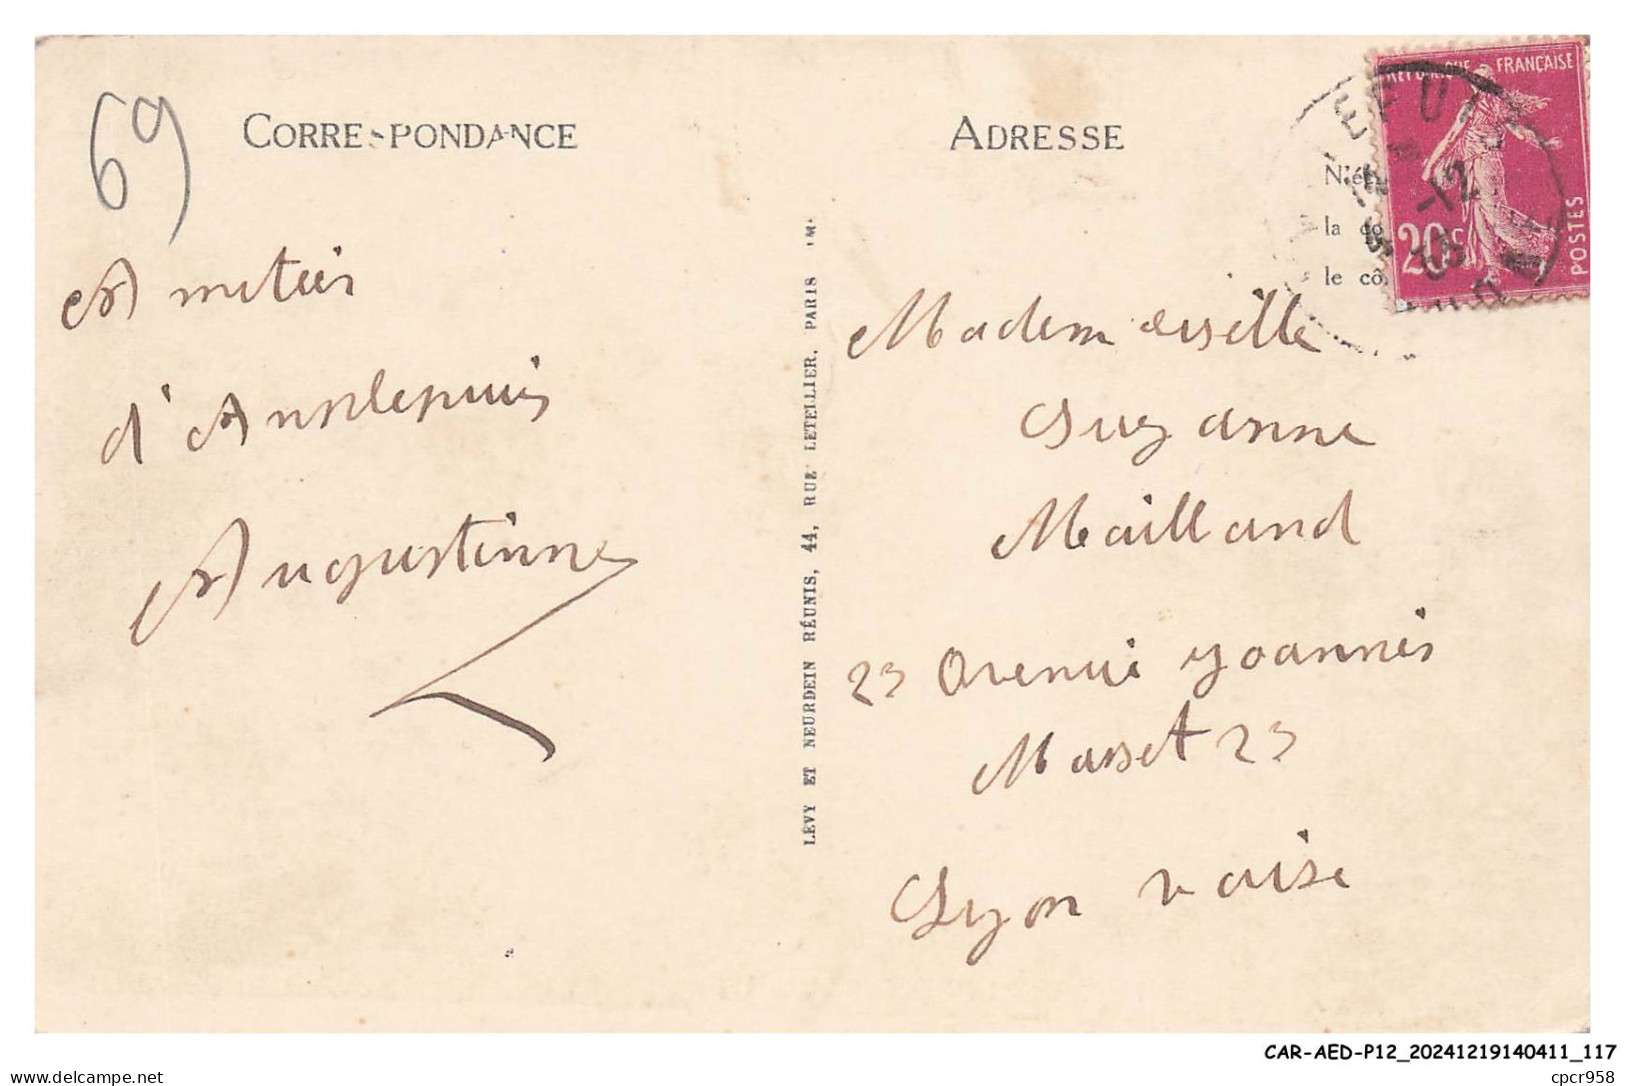 69
CORRESPONDANCE
Amitiés
d'Anselepuis
Augustinne
LÉVY ET NEURDEIN RÉUNIS, 44, RUE LETELLIER, PARIS IMP.
ADRESSE
RÉPUBLIQUE FRANÇAISE
20c
POSTES
-12
la co
le cô
Mademoiselle
Suzanne
Mailland
23 Avenue Yoannès
Masset 23
Lyon vaise
CAR-AED-P12_20241219140411_117
delcampe.net
cpcr958